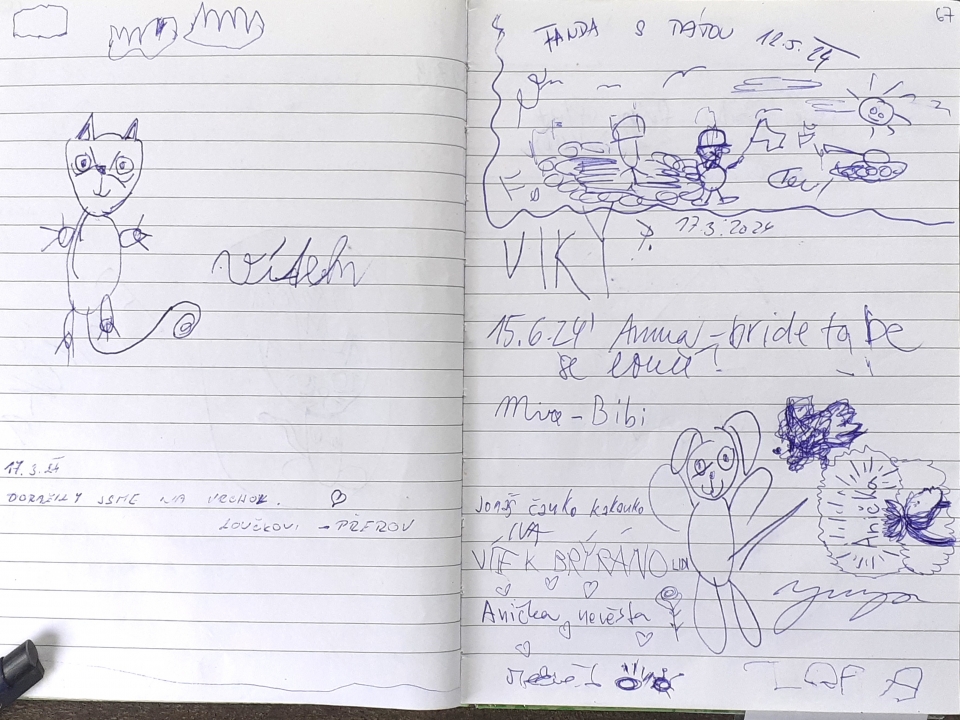 17.3.24
DORAZILY JSME NA VRCHOL.
LOUČKOVI - PŘEROV
67
FANDA S TÁTOU 12.5.24
17.3.2024
VIKI
15.6.24 Anna - bride to be
se loučí!
Mira - Bibi
Jonáš čauko kakauko
IVA
VÍTEK BRÝRÁNO LIDI
Anička, nevěsta
Anička